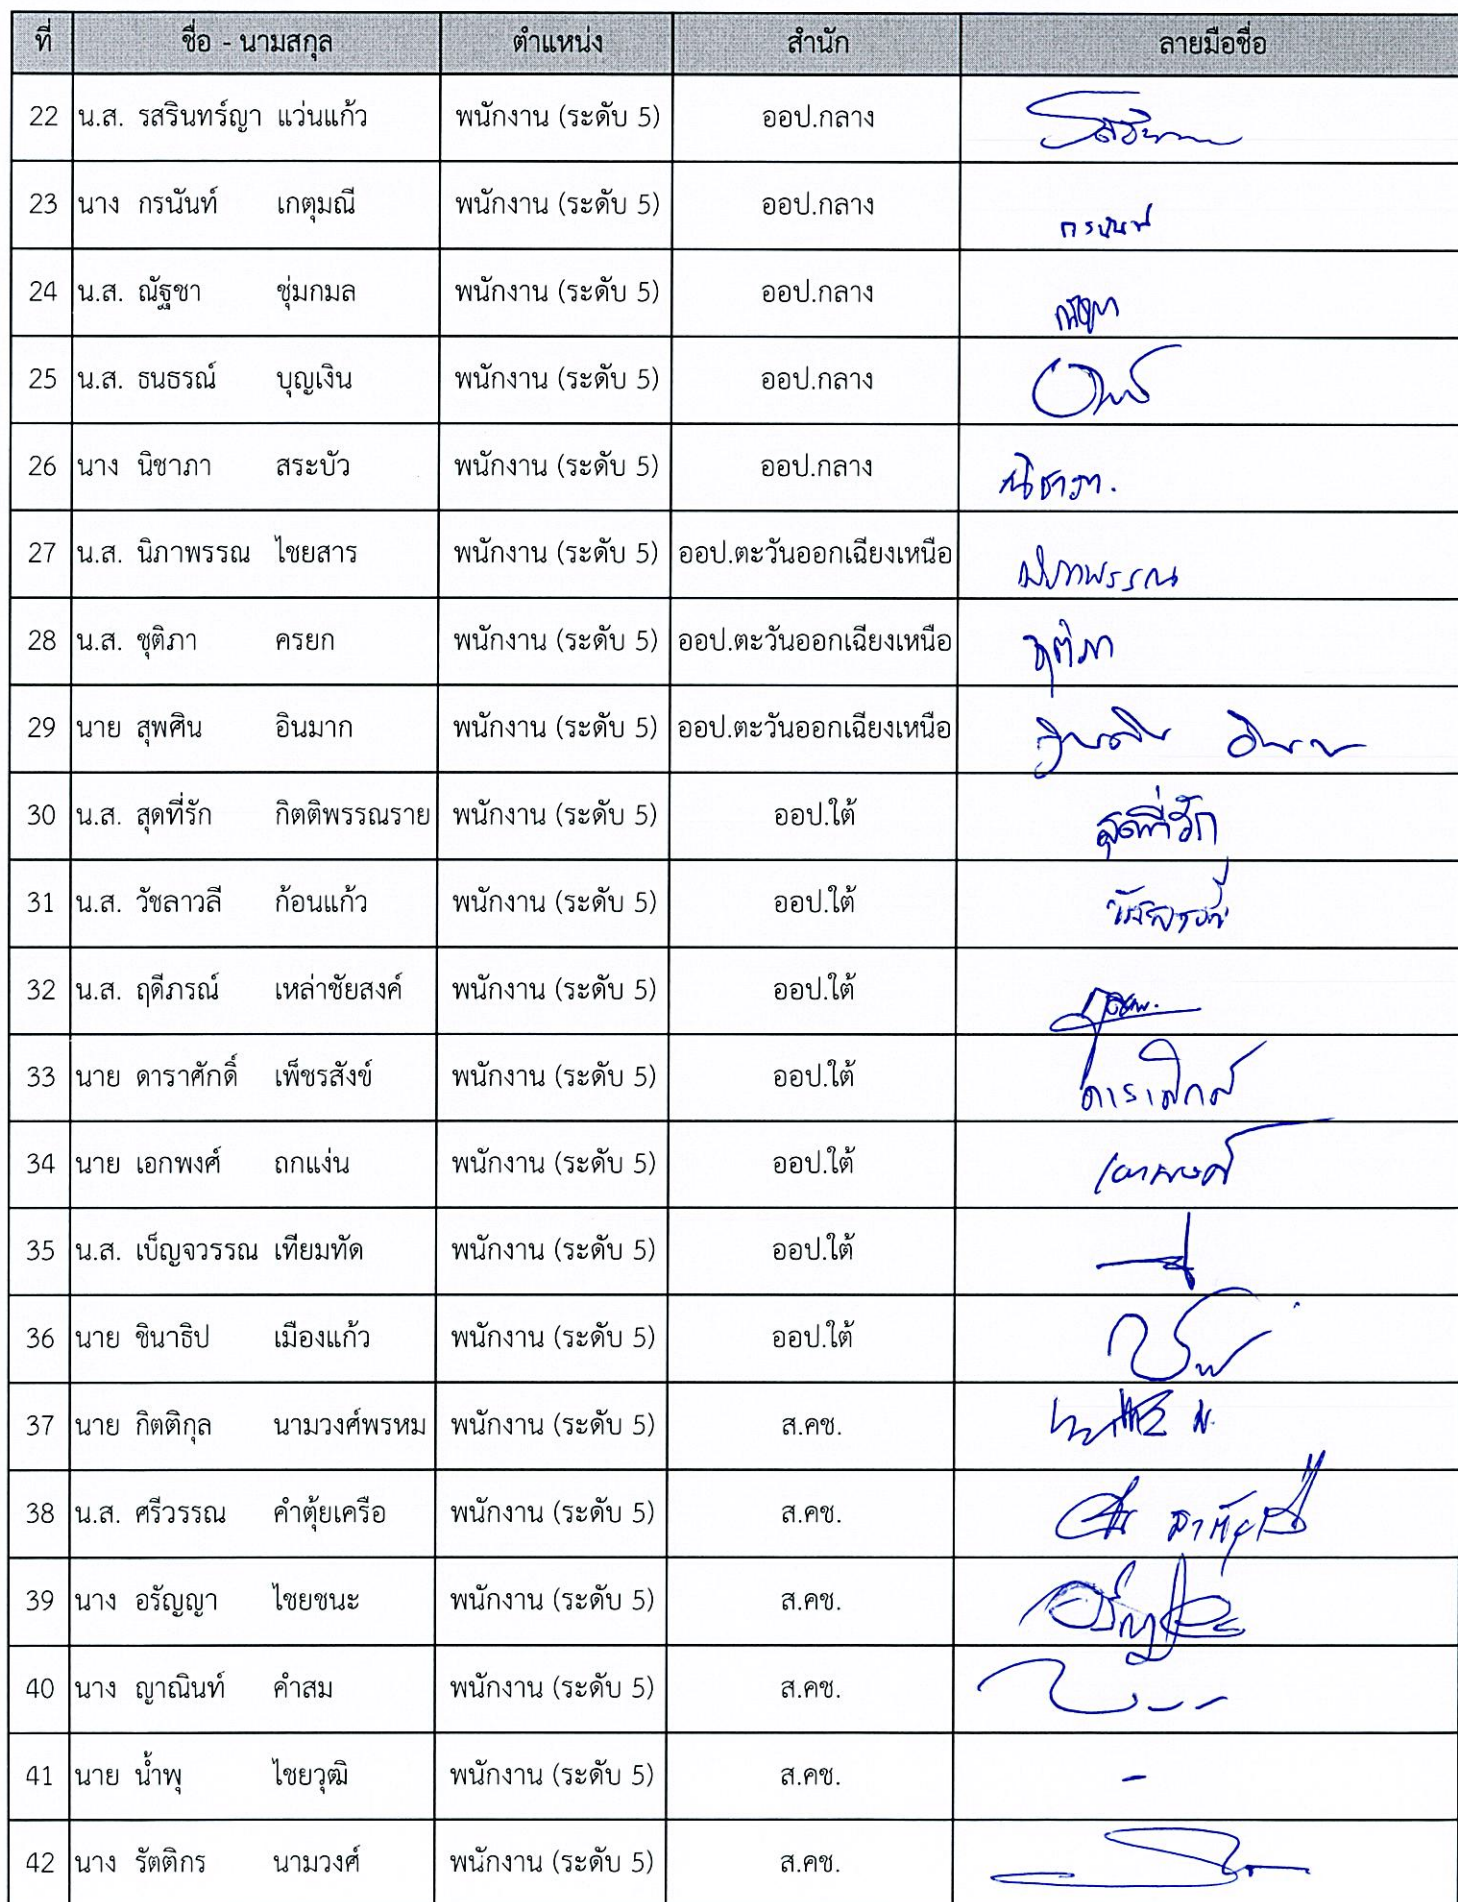 ที่ ชื่อ - นามสกุล ตำแหน่ง สำนัก ลายมือชื่อ
22 น.ส. รสรินทร์ญา แว่นแก้ว พนักงาน (ระดับ 5) ออป.กลาง
23 นาง กรนันท์ เกตุมณี พนักงาน (ระดับ 5) ออป.กลาง กรนันท์
24 น.ส. ณัฐชา ชุ่มกมล พนักงาน (ระดับ 5) ออป.กลาง ณัฐชา
25 น.ส. ธนธรณ์ บุญเงิน พนักงาน (ระดับ 5) ออป.กลาง
26 นาง นิชาภา สระบัว พนักงาน (ระดับ 5) ออป.กลาง นิชาภา.
27 น.ส. นิภาพรรณ ไชยสาร พนักงาน (ระดับ 5) ออป.ตะวันออกเฉียงเหนือ นิภาพรรณ
28 น.ส. ชุติภา ครยก พนักงาน (ระดับ 5) ออป.ตะวันออกเฉียงเหนือ ชุติภา
29 นาย สุพศิน อินมาก พนักงาน (ระดับ 5) ออป.ตะวันออกเฉียงเหนือ
30 น.ส. สุดที่รัก กิตติพรรณราย พนักงาน (ระดับ 5) ออป.ใต้ สุดที่รัก
31 น.ส. วัชลาวลี ก้อนแก้ว พนักงาน (ระดับ 5) ออป.ใต้
32 น.ส. ฤดีภรณ์ เหล่าชัยสงค์ พนักงาน (ระดับ 5) ออป.ใต้
33 นาย ดาราศักดิ์ เพ็ชรสังข์ พนักงาน (ระดับ 5) ออป.ใต้ ดาราศักดิ์
34 นาย เอกพงศ์ ถกแง่น พนักงาน (ระดับ 5) ออป.ใต้ เอกพงศ์
35 น.ส. เบ็ญจวรรณ เทียมทัด พนักงาน (ระดับ 5) ออป.ใต้
36 นาย ชินาธิป เมืองแก้ว พนักงาน (ระดับ 5) ออป.ใต้
37 นาย กิตติกุล นามวงศ์พรหม พนักงาน (ระดับ 5) ส.คช.
38 น.ส. ศรีวรรณ คำตุ้ยเครือ พนักงาน (ระดับ 5) ส.คช.
39 นาง อรัญญา ไชยชนะ พนักงาน (ระดับ 5) ส.คช.
40 นาง ญาณินท์ คำสม พนักงาน (ระดับ 5) ส.คช.
41 นาย น้ำพุ ไชยวุฒิ พนักงาน (ระดับ 5) ส.คช. -
42 นาง รัตติกร นามวงศ์ พนักงาน (ระดับ 5) ส.คช.